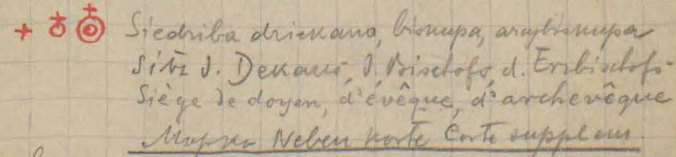 Siedziba dziekana, biskupa, arcybiskupa
Sitz d. Dekans, d. Bischofs, d. Erzbischofs
Siège de doyen, d'évêque, d'archevêque
Neben Karte Carte supplem.